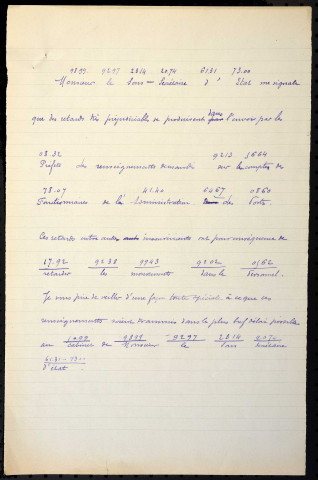 9899. 9297 2814 2074 6131 73.00
Monsieur le Sous-Secrétaire d'Etat me signale
que des retards très préjudiciables se produisent dans l'envoi par les
08.32 9213 5664
Préfets des renseignements demandés sur les comptes de
78.07 41.40 0467 0860
Fonctionnaires de l'administration des Postes.
Ces retards entre autres inconvénients ont pour conséquence de
67.92 9238 0943 9202 0162
retarder les mouvements dans le Personnel.
Je vous prie de veiller d'une façon toute spéciale à ce que ces
renseignements soient transmis dans le plus bref délai possible
1099 9899 9297 2814 2074
au cabinet de Monsieur le Sous Secrétaire
6131-7300
d'état.